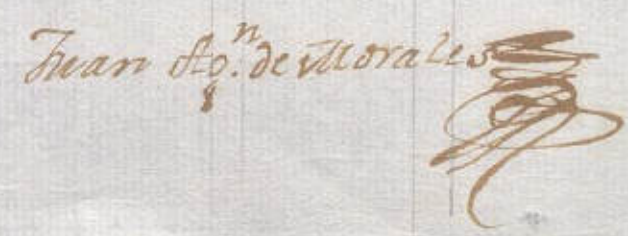 Juan Ag.n de Morales